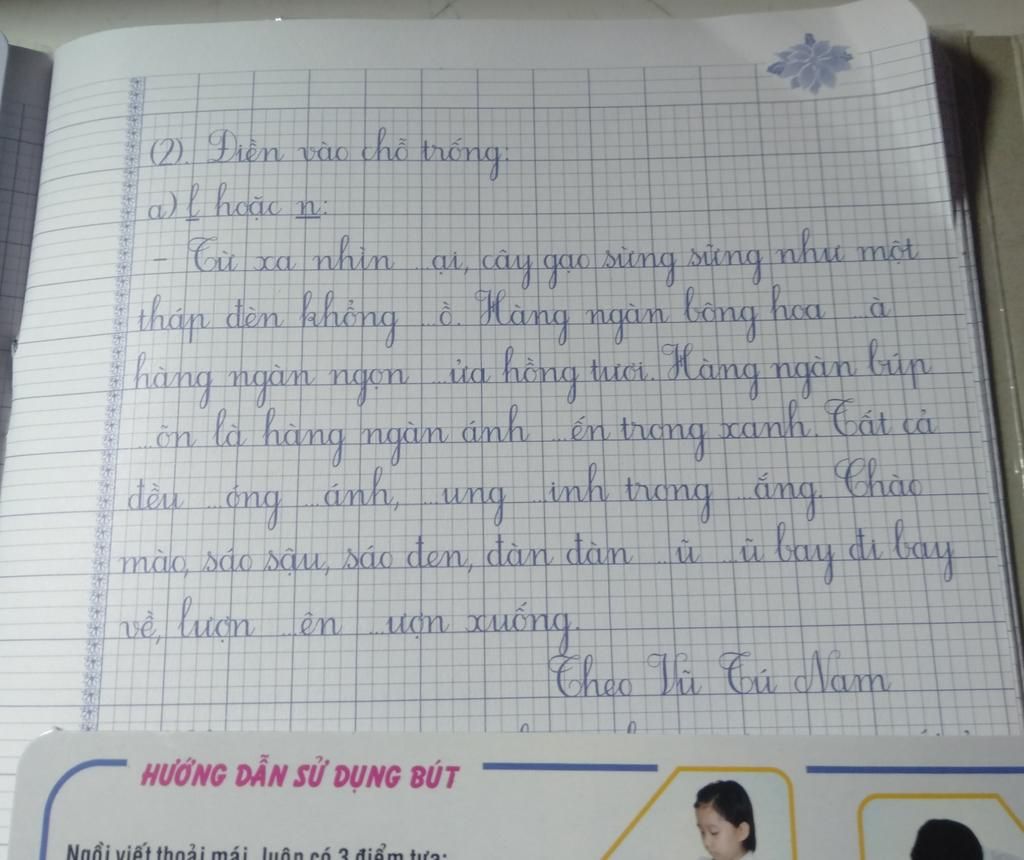 (2). Điền vào chỗ trống:
a) l hoặc n:
- Từ xa nhìn ...ại, cây gạo sừng sững như một
tháp đèn khổng ...ồ. Hàng ngàn bông hoa ...à
hàng ngàn ngọn ...ửa hồng tươi. Hàng ngàn búp
...õn là hàng ngàn ánh ...ến trong xanh. Tất cả
đều ...óng ...ánh, ...ung ...inh trong ...ắng. Chào
mào, sáo sậu, sáo đen, đàn đàn ...ũ ...ũ bay đi bay
về, lượn ...ên ...ượn xuống.
Theo Vũ Tú Nam
HƯỚNG DẪN SỬ DỤNG BÚT
Ngồi viết thoải mái, luôn có 3 điểm tựa: